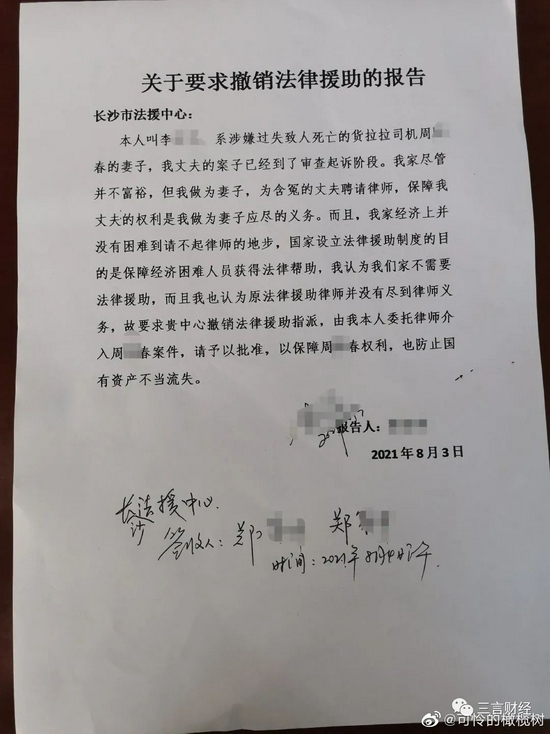 关于要求撤销法律援助的报告
长沙市法援中心:
本人叫李 系涉嫌过失致人死亡的货拉拉司机周
春的妻子,我丈夫的案子已经到了审查起诉阶段。我家尽管
并不富裕,但我做为妻子,为含冤的丈夫聘请律师,保障我
丈夫的权利是我做为妻子应尽的义务。而且,我家经济上并
没有困难到请不起律师的地步,国家设立法律援助制度的目
的是保障经济困难人员获得法律帮助,我认为我们家不需要
法律援助,而且我也认为原法律援助律师并没有尽到律师义
务,故要求贵中心撤销法律援助指派,由我本人委托律师介
入周 春案件,请予以批准,以保障周 春权利,也防止国
有资产不当流失。
报告人:
2021年8月3日
长沙法援中心
签收人:郑 郑
时间:2021年8月4日下午
三言财经
@可怜的橄榄树